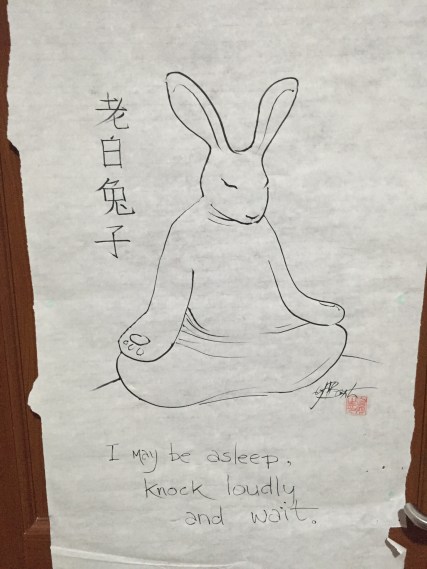 老白兔子
I may be asleep,
Knock loudly
and wait.